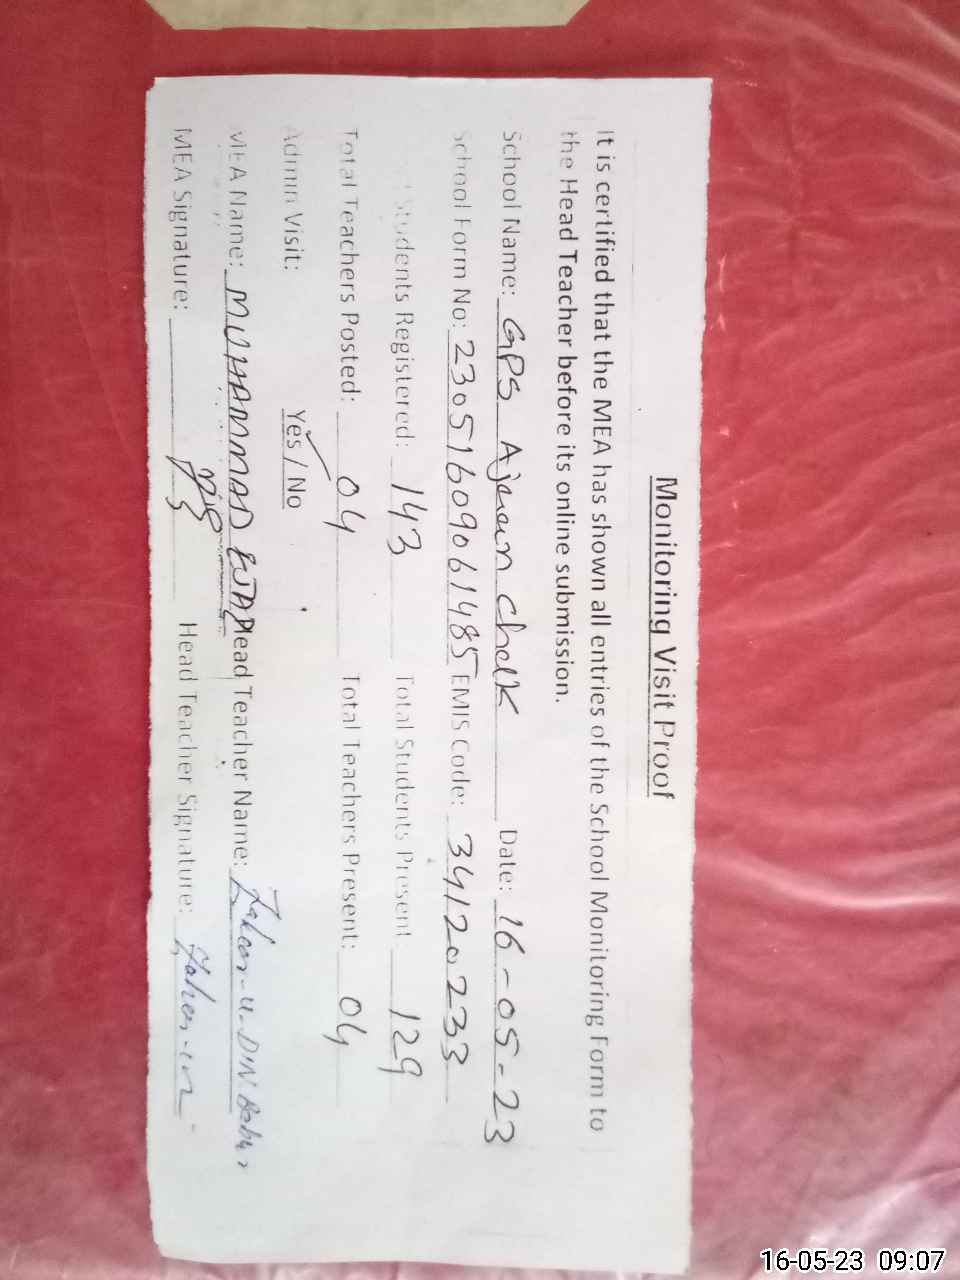 Monitoring Visit Proof
It is certified that the MEA has shown all entries of the School Monitoring Form to
the Head Teacher before its online submission.
School Name: GPS Chak Date: 16-05-23
School Form No: 23051609061485 EMIS Code: 34120233
Students Registered: 143 Total Students Present 129
Total Teachers Posted: 04 Total Teachers Present: 04
Admin Visit: Yes / No
MEA Name: MUHAMMAD Head Teacher Name: Zaheer-u-DIN Babar
MEA Signature: Head Teacher Signature:
16-05-23 09:07